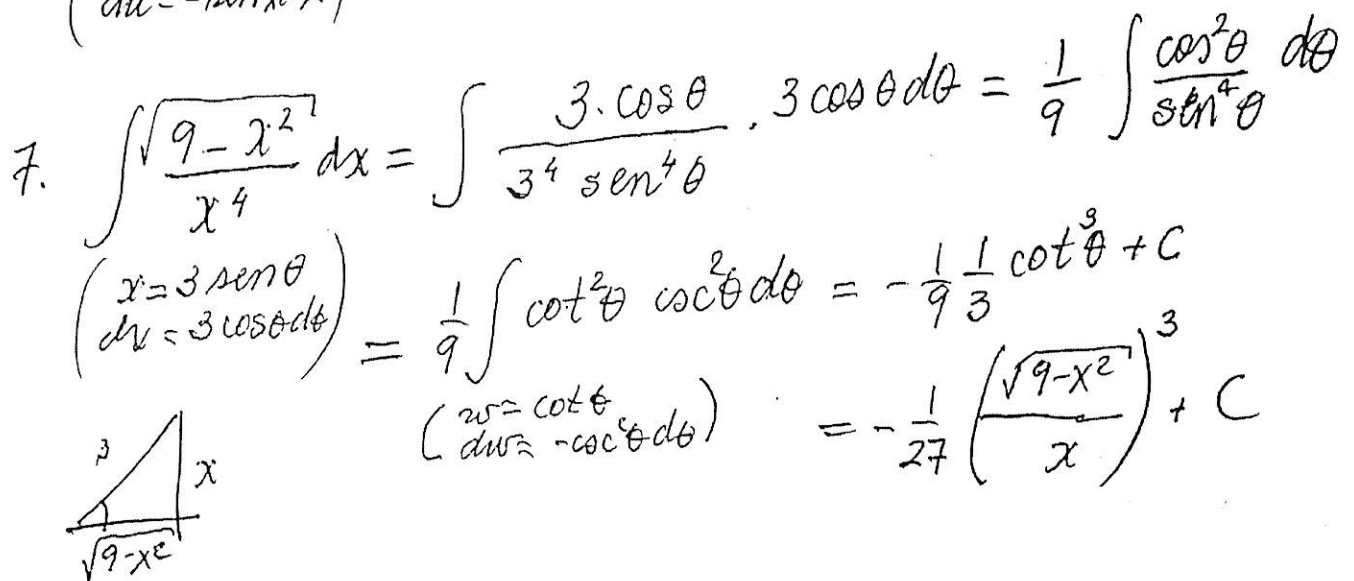 7. ∫ √(9-x²)/x⁴ dx = ∫ 3·cosθ/(3⁴ sen⁴θ) · 3 cosθ dθ = 1/9 ∫ cos²θ/sen⁴θ dθ
(x = 3 senθ
dx = 3 cosθ dθ)
= 1/9 ∫ cot²θ csc²θ dθ = -1/9 1/3 cot³θ + C
(w = cotθ
dw = -csc²θ dθ)
= -1/27 (√(9-x²)/x)³ + C
3
x
√(9-x²)